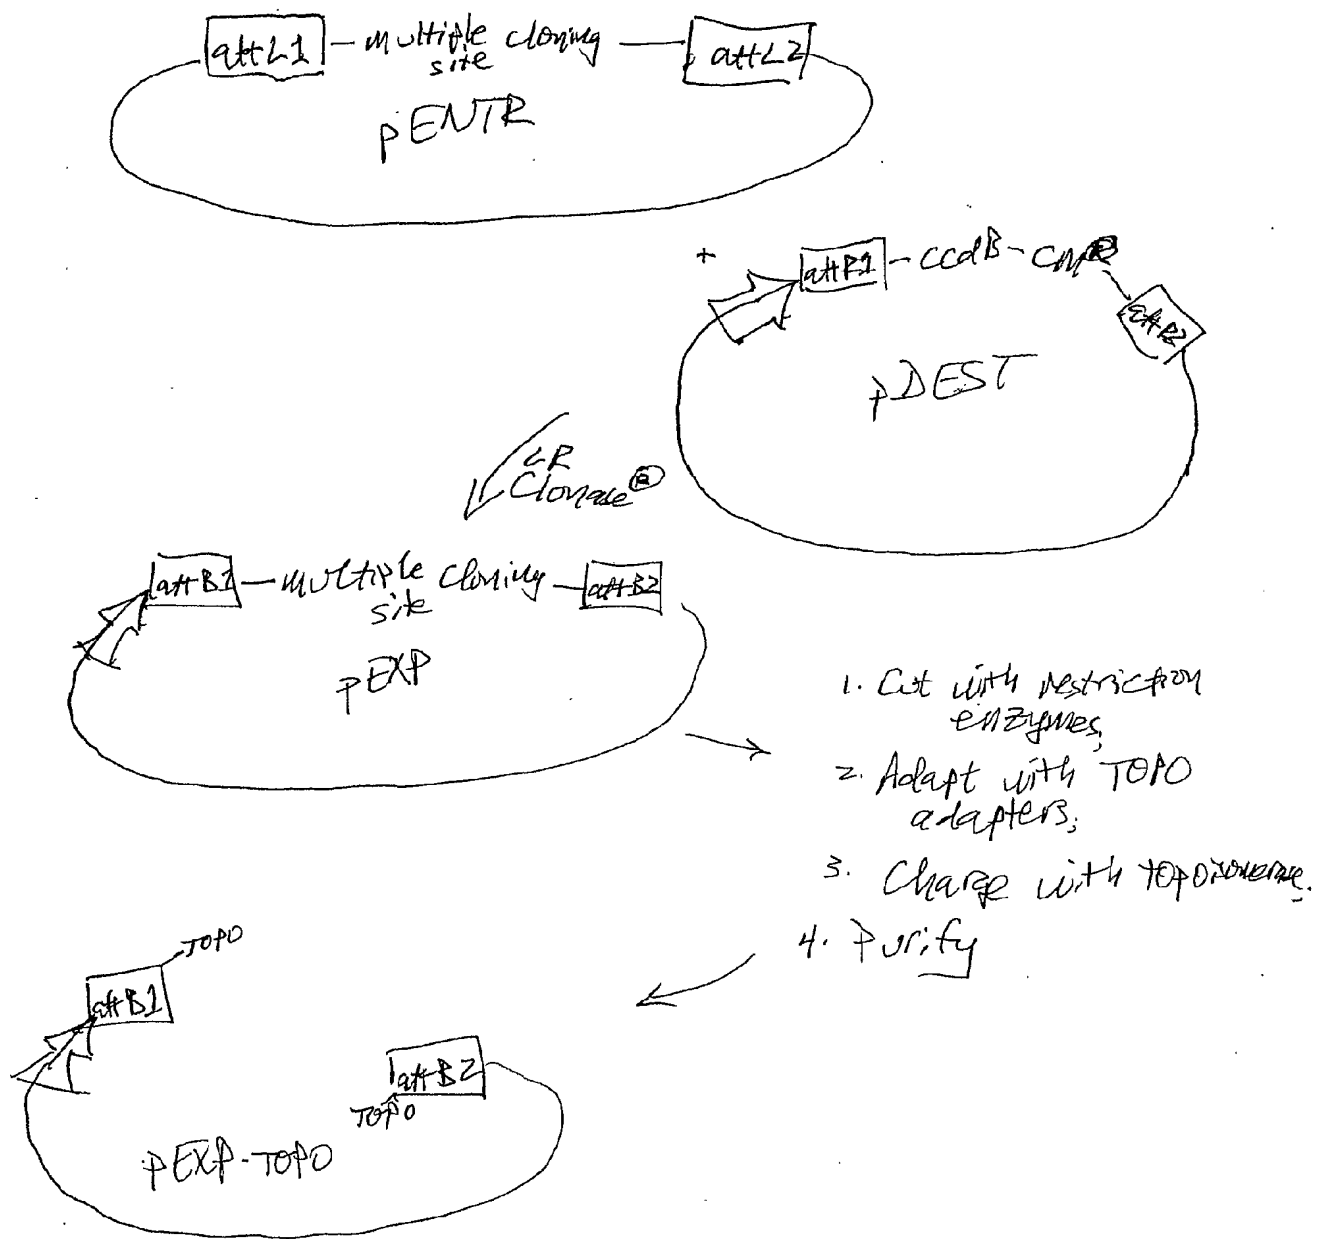 attL1 — multiple cloning — attL2
site
pENTR
+
attR1 — ccdB — CmR
attR2
pDEST
LR
Clonase®
attB1 — multiple cloning — attB2
site
pEXP
1. Cut with restriction
enzymes;
2. Adapt with TOPO
adapters;
3. Charge with topoisomerase.
4. Purify
TOPO
attB1
attB2
TOPO
pEXP-TOPO